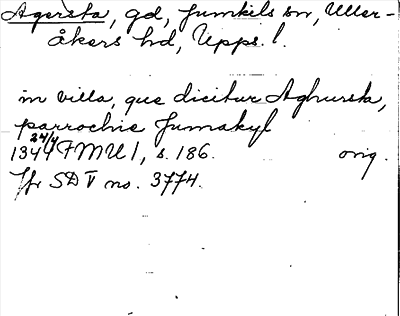 Agersta, gd, Jumkils sn, Uller-
åkers hd, Upps. l.
in villa, que dicitur Aghursta,
parrochie Jumakyl
1344 24/4 FMU 1, s. 186. orig.
Jfr SD V no. 3774.